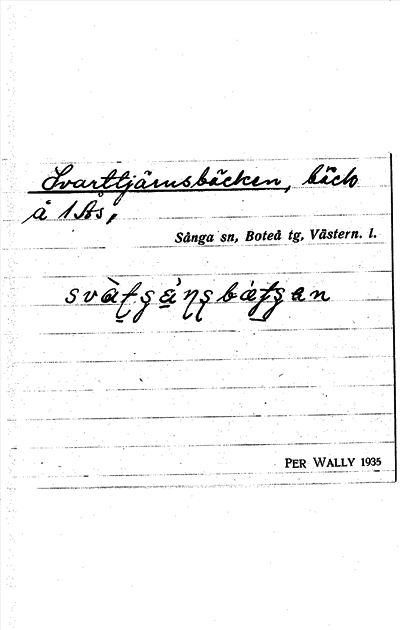 Svarttjärnsbäcken, bäck
å 1 Ås,
Sånga sn, Boteå tg, Västern. l.
PER WALLY 1935